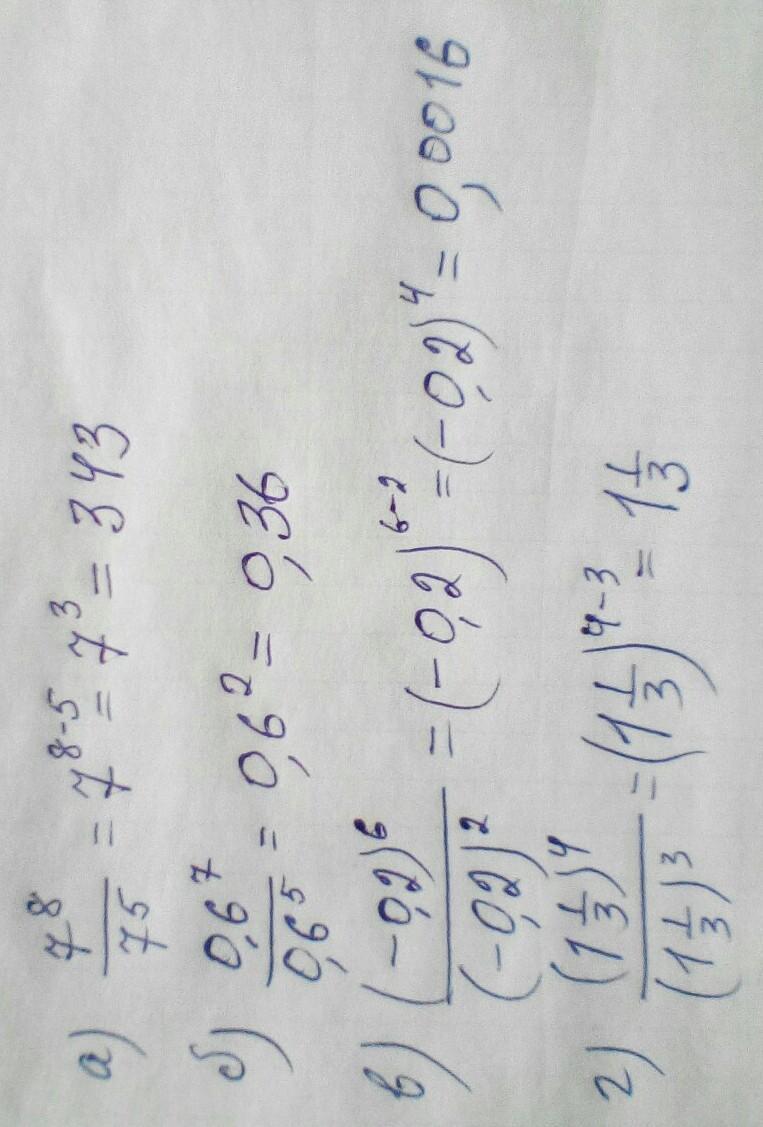 а) 7⁸/7⁵ = 7⁸⁻⁵ = 7³ = 343
б) 0,6⁷/0,6⁵ = 0,6² = 0,36
в) (-0,2)⁶/(-0,2)² = (-0,2)⁶⁻² = (-0,2)⁴ = 0,0016
г) (1 1/3)⁴/(1 1/3)³ = (1 1/3)⁴⁻³ = 1 1/3